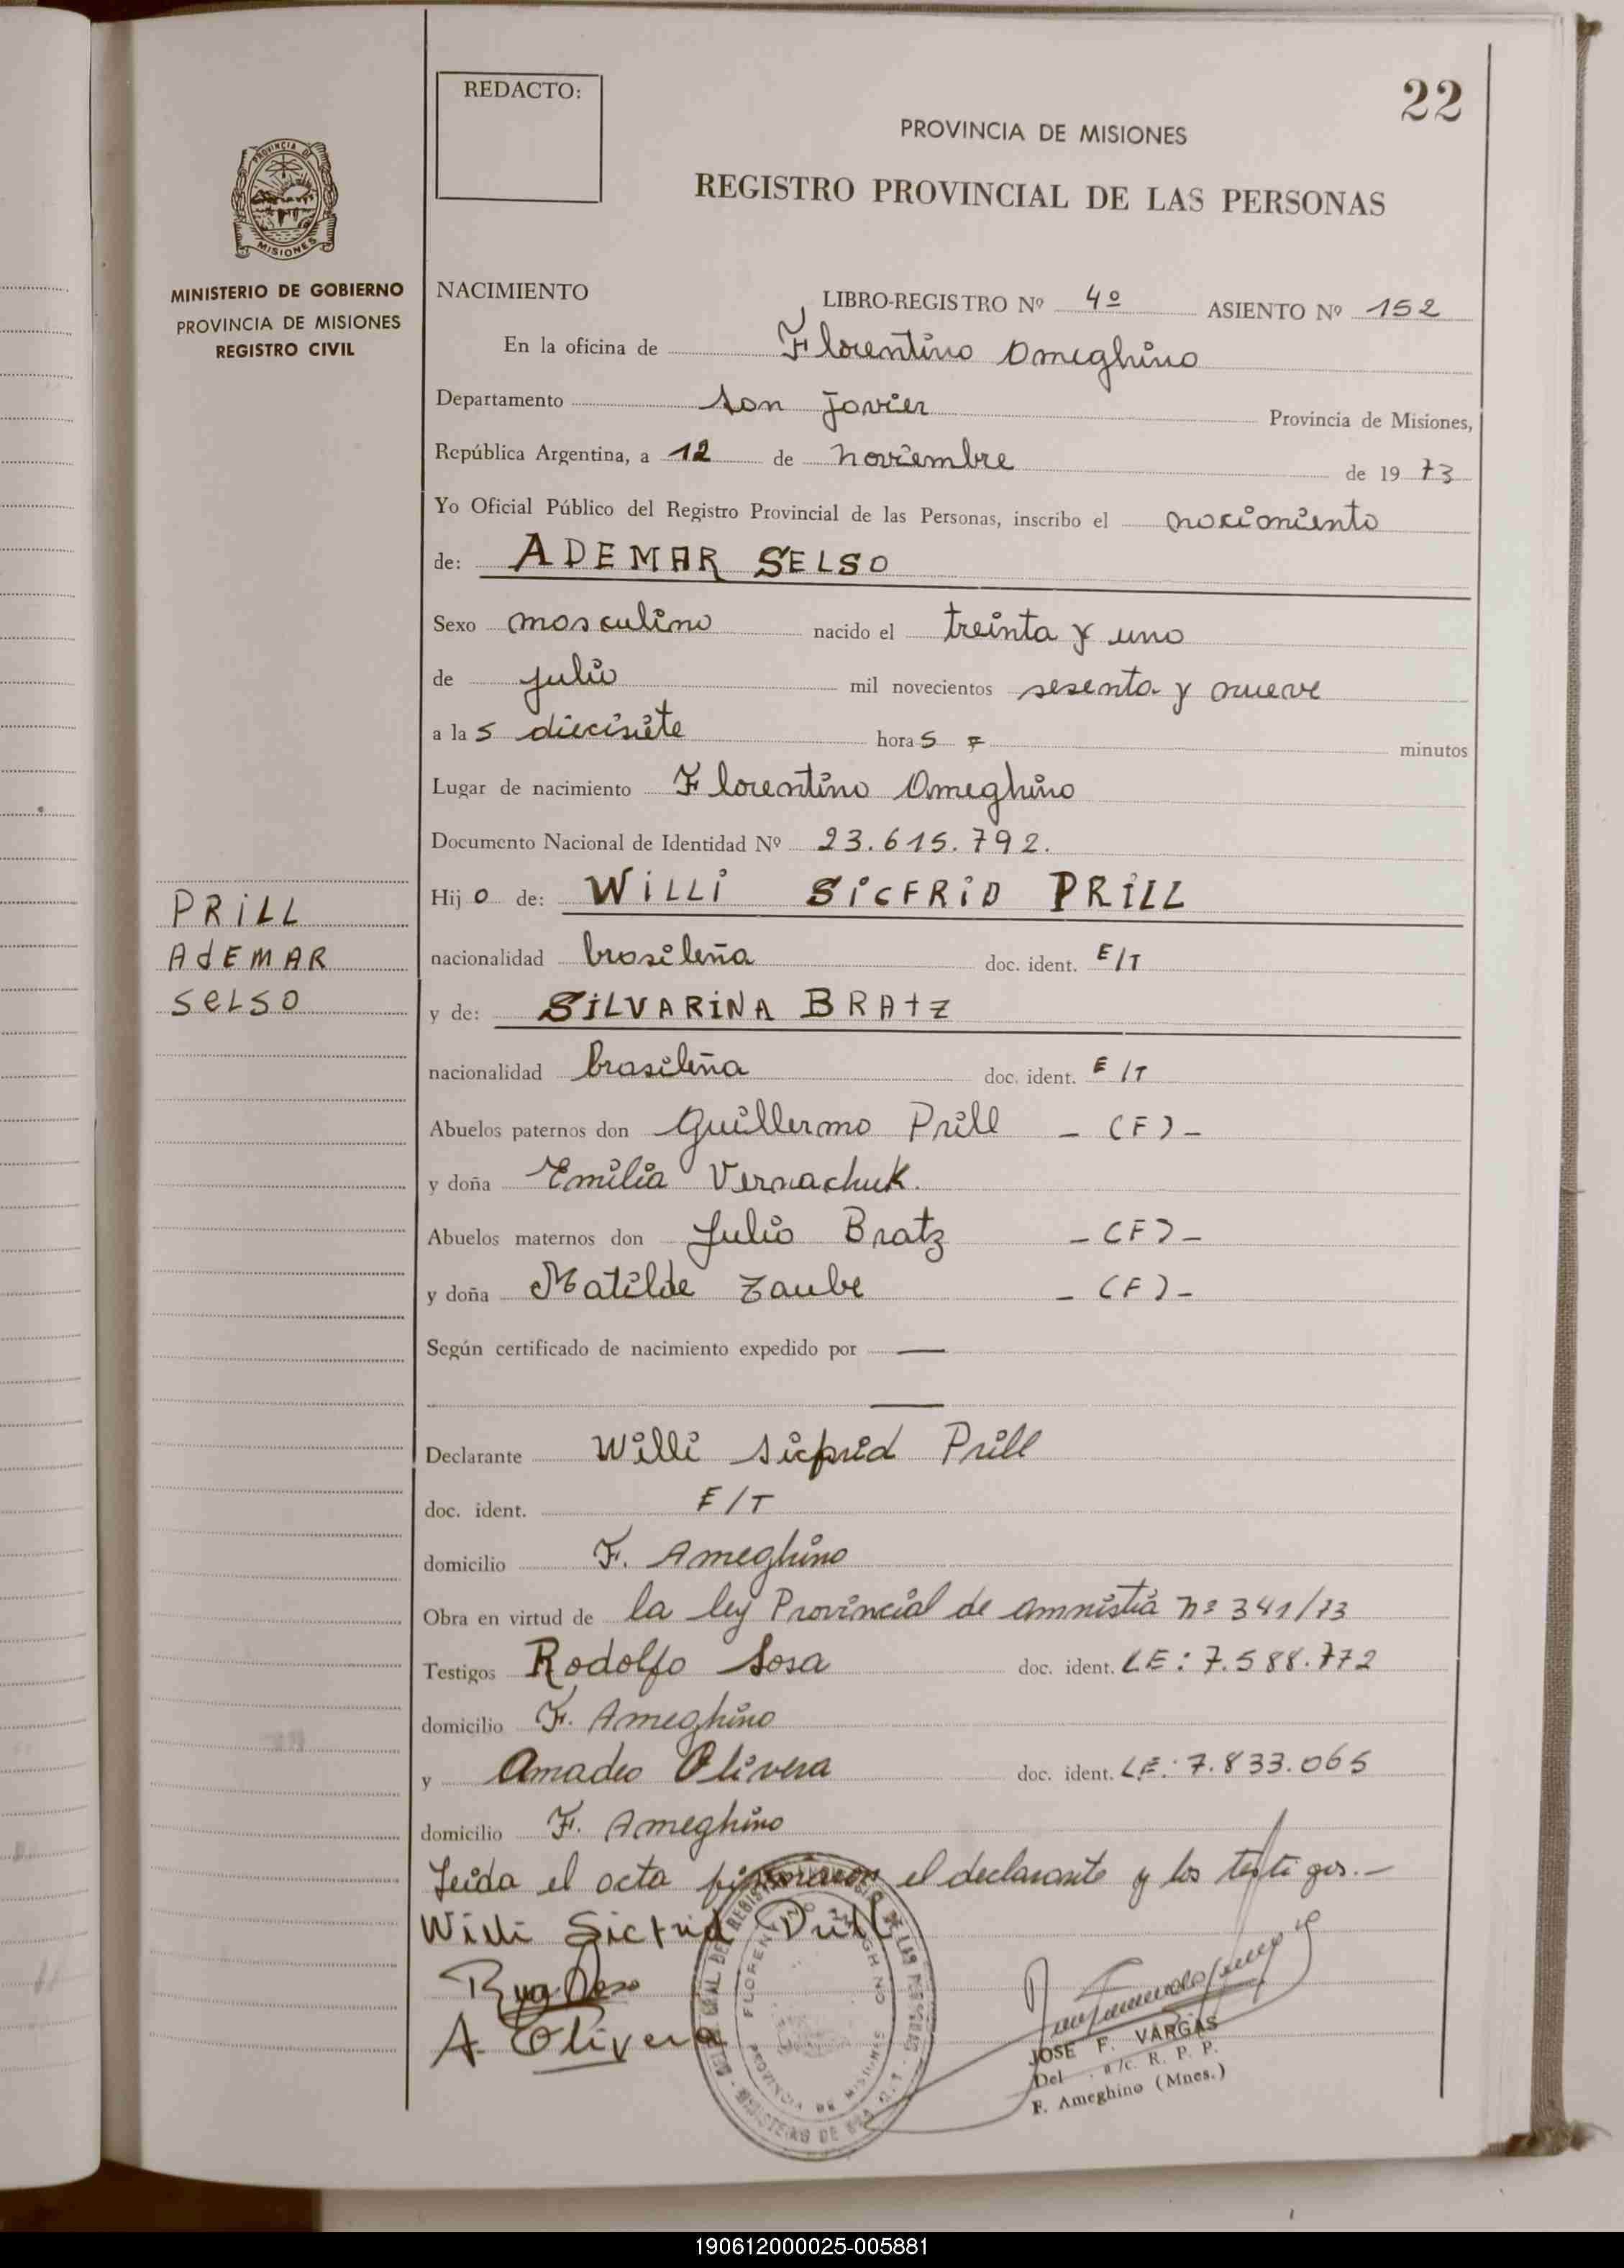 22
REDACTO:
PROVINCIA DE MISIONES
REGISTRO PROVINCIAL DE LAS PERSONAS
PROVINCIA DE
MISIONES
MINISTERIO DE GOBIERNO
PROVINCIA DE MISIONES
REGISTRO CIVIL
PRILL
AdEMAR
SELSO
NACIMIENTO LIBRO-REGISTRO Nº 4º ASIENTO Nº 152
En la oficina de Florentino Ameghino
Departamento San Javier Provincia de Misiones,
República Argentina, a 12 de noviembre de 1973
Yo Oficial Público del Registro Provincial de las Personas, inscribo el nacimiento
de: ADEMAR SELSO
Sexo masculino nacido el treinta y uno
de julio mil novecientos sesenta y nueve
a las diecisiete horas minutos
Lugar de nacimiento Florentino Ameghino
Documento Nacional de Identidad Nº 23.615.792.
Hijo de: WILLI SICFRID PRILL
nacionalidad brasileña doc. ident. E/T
y de: SILVARINA BRATZ
nacionalidad brasileña doc. ident. E/T
Abuelos paternos don Guillermo Prill - (F) -
y doña Emilia Vernachuk.
Abuelos maternos don Julio Bratz - (F) -
y doña Matilde Zaube - (F) -
Según certificado de nacimiento expedido por —
—
Declarante Willi Sicfrid Prill
doc. ident. E/T
domicilio F. Ameghino
Obra en virtud de la ley Provincial de amnistia nº 341/73
Testigos Rodolfo Sosa doc. ident. LE: 7.588.772
domicilio F. Ameghino
y Amadeo Olivera doc. ident. LE: 7.833.065
domicilio F. Ameghino
Leida el acta firmaron el declarante y los testigos.-
Willi Sicfrid Prill
A. Olivera
FLORENTINO AMEGHINO
PROVINCIA DE MISIONES
JOSE F. VARGAS
Del. a/c. R. P. P.
F. Ameghino (Mnes.)
190612000025-005881